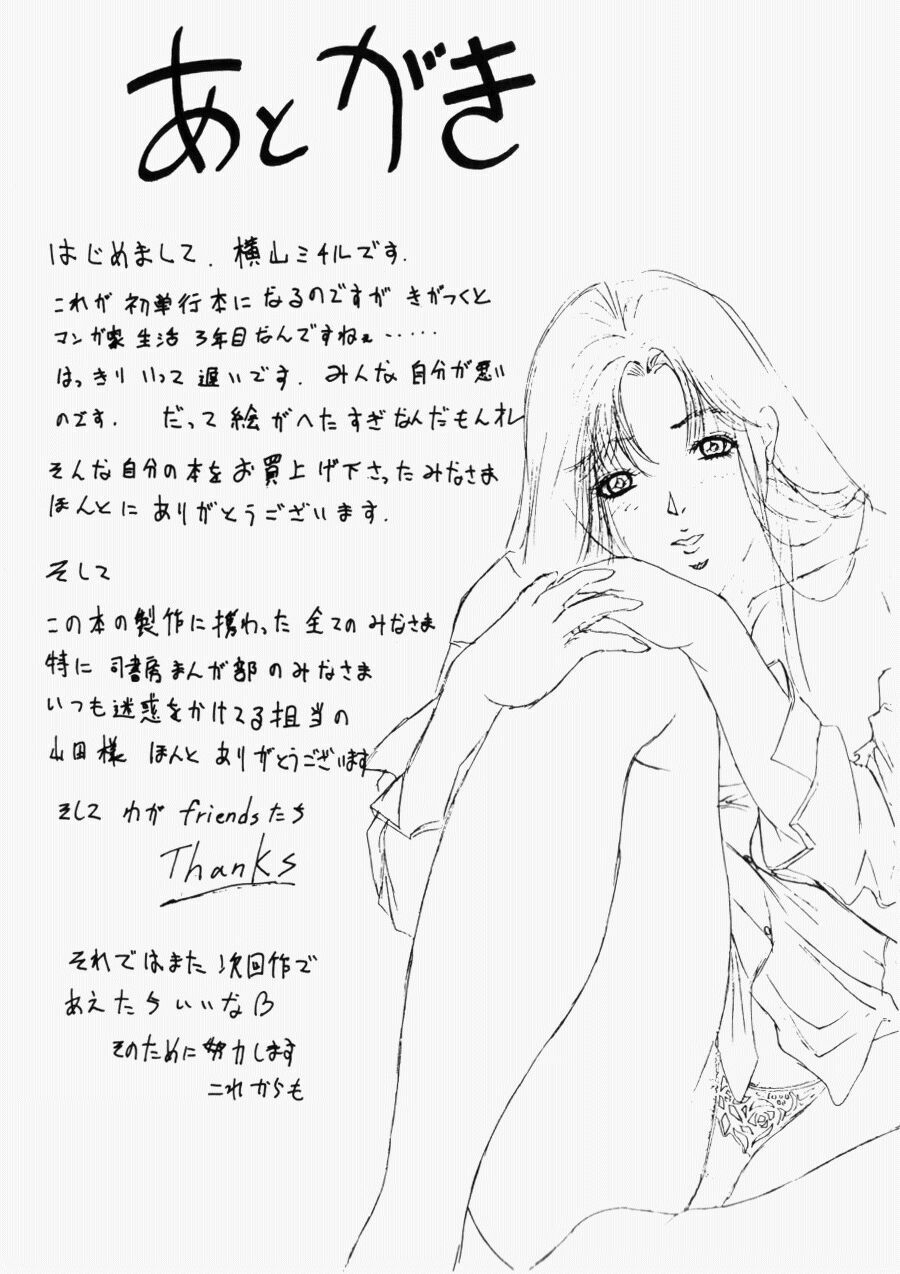 あとがき
はじめまして、横山ミチルです.
これが 初単行本に なるのですが きがつくと
マンガ家 生活 3年目なんですねぇ……
はっきり いって 遅いです. みんな 自分が悪い
のです. だって 絵がへたすぎなんだもんオレ
そんな自分の本をお買上げ下さったみなさま
ほんとに ありがとうございます.
そして
この本の製作に携わった 全ての みなさま
特に 司書房まんが部のみなさま
いつも迷惑をかけてる担当の
山田様 ほんと ありがとうございます
そして わが friendsたち
Thanks
それではまた 次回作で
あえたらいいな
そのために努力します
これからも